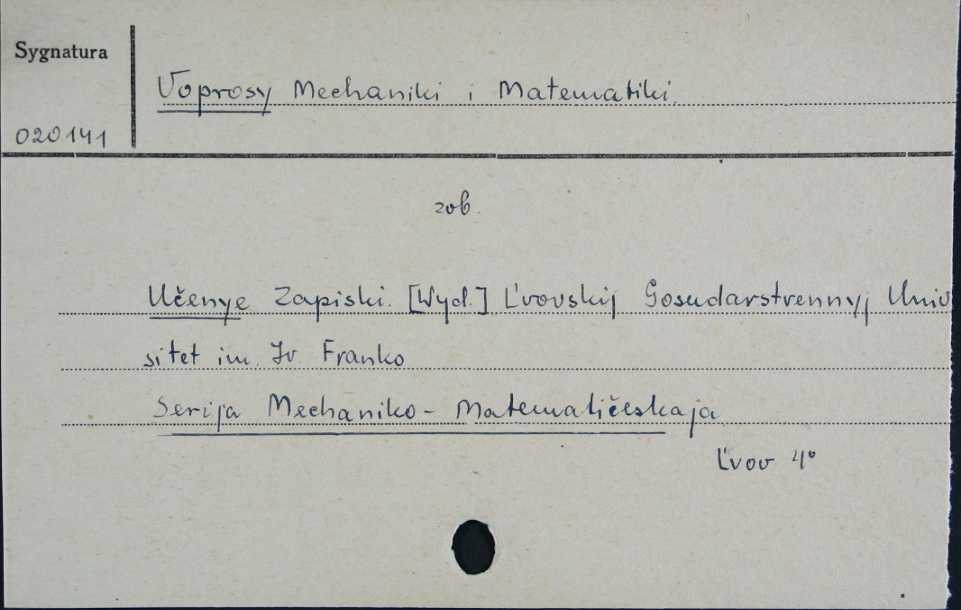 Sygnatura
Voprosy Mechaniki i Matematiki.
020141
zob.
Učenye Zapiski. [Wyd.] L'vovskij Gosudarstrennyj Univ
sitet im. Iv. Franko
Serija Mechaniko-Matematičeskaja
L'vov 4°